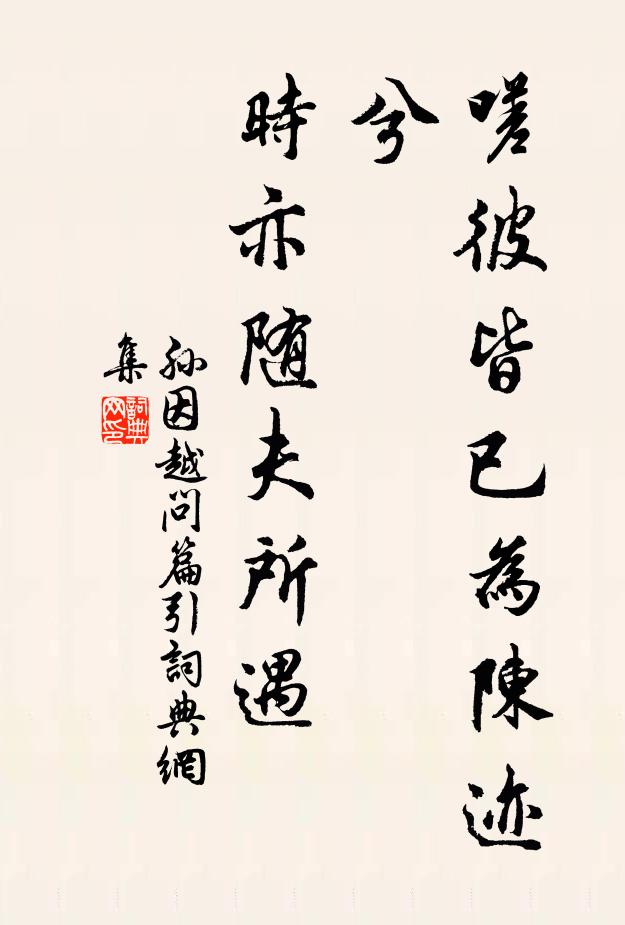 嗟彼皆已為陳迹
兮
時亦随夫所遇
孫因越問篇引詞典網
集
詞典
网印